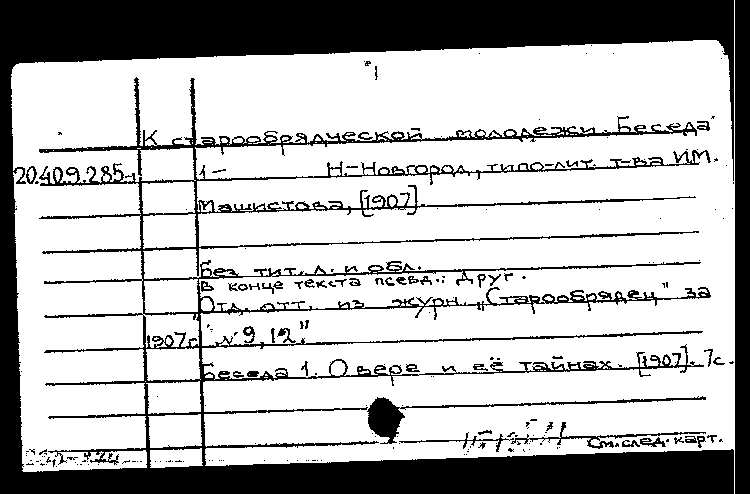 1
К старообрядческой молодежи. Беседа
20.409.285-1 1- Н-Новгород, типо-лит. т-ва И.М.
Машистова, [1907].
Без тит. л. и обл.
В конце текста псевд.: Друг.
"Отд. отт. из журн. "Старообрядец" за
1907 г. № 9, 12."
Беседа 1. О вере и её тайнах. [1907]. 7с.
См. след. карт.